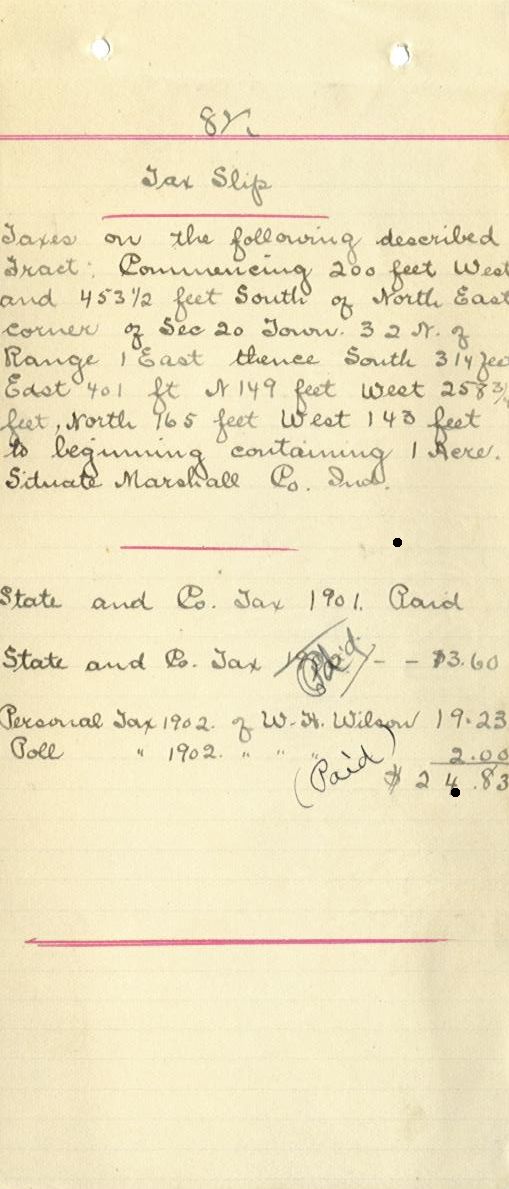 Tax Slip
Taxes on the following described
Tract: Commencing 200 feet West
and 453 1/2 feet South of North East
corner of Sec 20 Town. 32 N. of
Range 1 East thence South 314 feet
East 401 ft N 149 feet West 258 3/4
feet, North 165 feet West 143 feet
to beginning containing 1 Acre.
Situate Marshall Co. Ind.
State and Co. Tax 1901. Paid
State and Co. Tax Paid - - $3.60
Personal Tax 1902. of W. H. Wilson 19.23
Poll " 1902. " " " 2.00
(Paid) $ 24.83